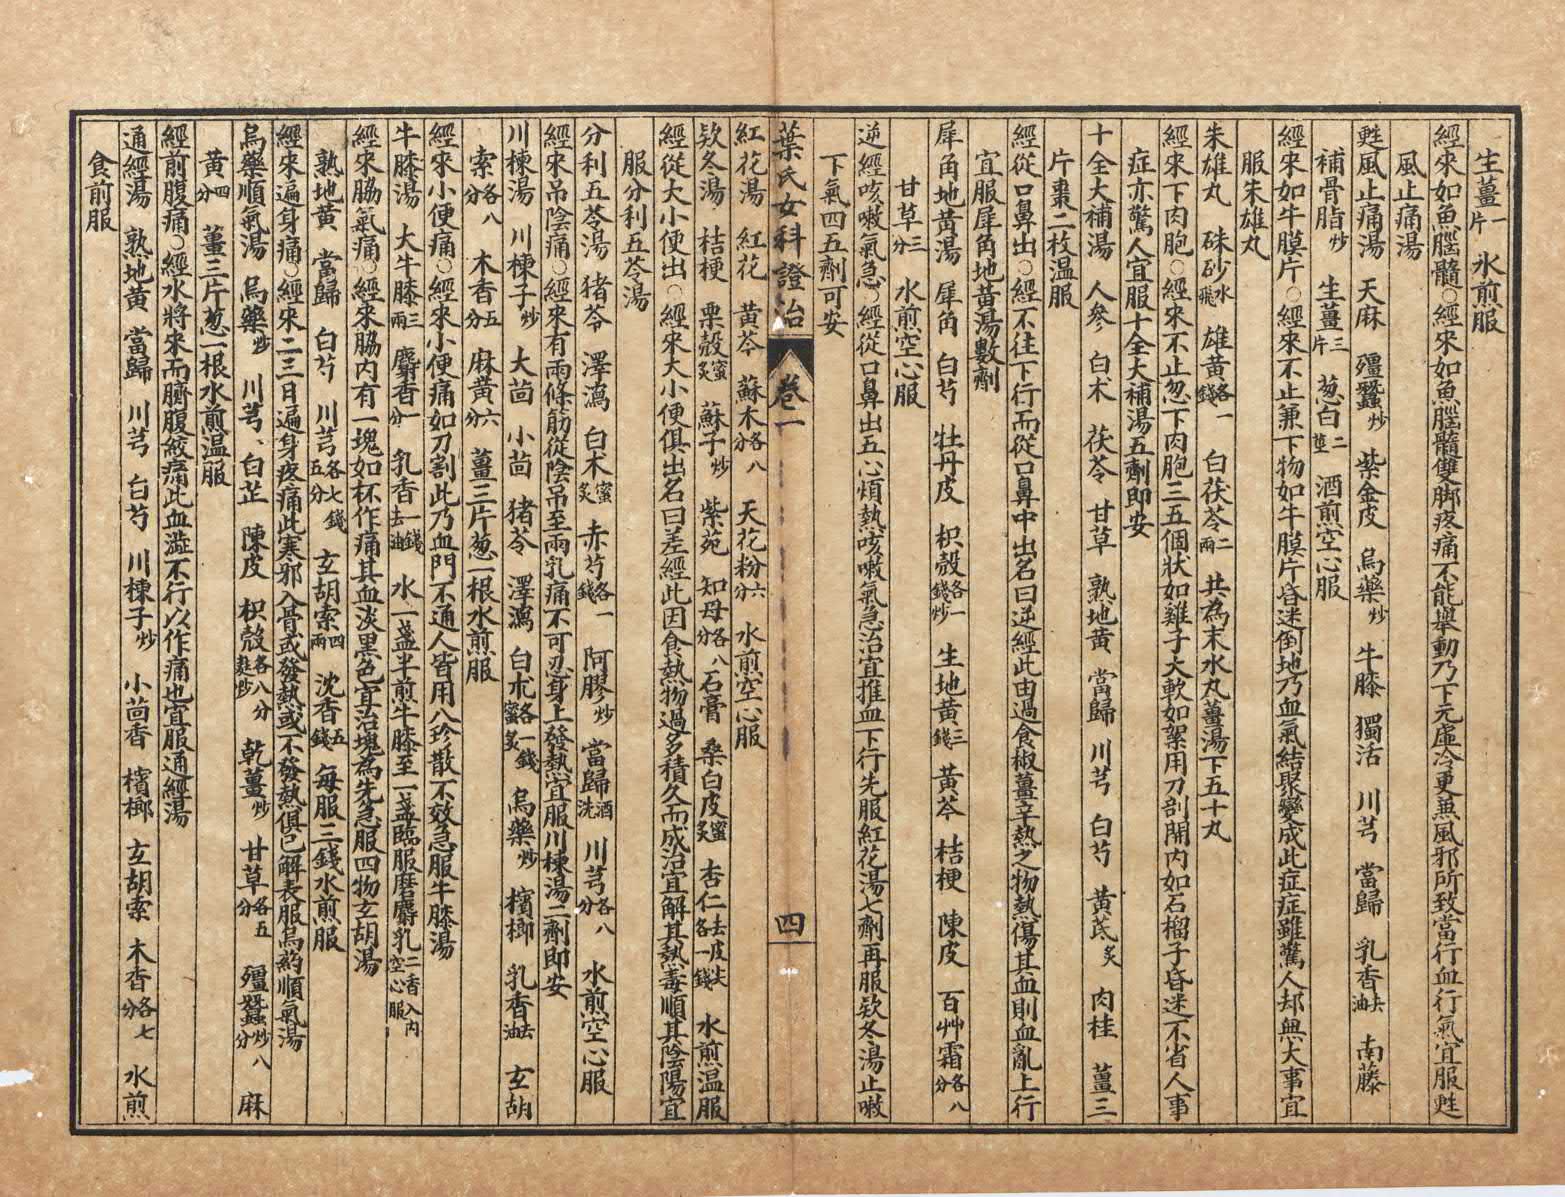 生薑一片　水煎服
經來如魚腦髓○經來如魚腦髓雙脚疼痛不能舉動乃下元虛冷更兼風邪所致當行血行氣宜服甦
風止痛湯
甦風止痛湯　天麻　殭蠶炒　紫金皮　烏藥炒　牛膝　獨活　川芎　當歸　乳香去油　南藤
補骨脂炒　生薑三片　葱白二莖　酒煎空心服
經來如牛膜片○經來不止兼下物如牛膜片昏迷倒地乃血氣結聚變成此症症雖驚人却無大事宜
服朱雄丸
朱雄丸　硃砂水飛　雄黃各一錢　白茯苓二兩　共為末水丸薑湯下五十丸
經來下肉胞○經來不止忽下肉胞三五個狀如雞子大軟如絮用刀剖開內如石榴子昏迷不省人事
症亦驚人宜服十全大補湯五劑即安
十全大補湯　人參　白朮　茯苓　甘草　熟地黃　當歸　川芎　白芍　黃芪炙　肉桂　薑三
片棗二枚溫服
經從口鼻出○經不往下行而從口鼻中出名曰逆經此由過食椒薑辛熱之物熱傷其血則血亂上行
宜服犀角地黃湯數劑
犀角地黃湯　犀角　白芍　牡丹皮　枳殼各一錢炒　生地黃三錢　黃芩　桔梗　陳皮　百艸霜各八分
甘草三分　水煎空心服
逆經咳嗽氣急○經從口鼻出五心煩熱咳嗽氣急治宜推血下行先服紅花湯七劑再服欵冬湯止嗽
下氣四五劑可安
葉氏女科證治　卷一　四
紅花湯　紅花　黃芩　蘇木各八分　天花粉六分　水煎空心服
欵冬湯　桔梗　栗殼蜜炙　蘇子炒　紫苑　知母各八分　石膏　桑白皮蜜炙　杏仁去皮尖各一錢　水煎溫服
經從大小便出○經來大小便俱出名曰差經此因食熱物過多積久而成治宜解其熱毒順其陰陽宜
服分利五苓湯
分利五苓湯　猪苓　澤瀉　白朮蜜炙　赤芍各一錢　阿膠炒　當歸酒洗　川芎各八分　水煎空心服
經來吊陰痛○經來有兩條筋從陰吊至兩乳痛不可忍身上發熱宜服川楝湯二劑即安
川楝湯　川楝子炒　大茴　小茴　猪苓　澤瀉　白朮各一錢蜜炙　烏藥炒　檳榔　乳香去油　玄胡
索各八分　木香五分　麻黃六分　薑三片葱一根水煎服
經來小便痛○經來小便痛如刀割此乃血門不通人皆用八珍散不效急服牛膝湯
牛膝湯　大牛膝三兩　麝香一分　乳香一錢去油　水一盞半煎牛膝至一盞臨服磨麝乳二香入內空心服
經來脇氣痛○經來脇內有一塊如杯作痛其血淡黑色宜治塊為先急服四物玄胡湯
熟地黃　當歸　白芍　川芎各七錢五分　玄胡索四兩　沈香五錢　每服三錢水煎服
經來遍身痛○經來二三日遍身疼痛此寒邪入骨或發熱或不發熱俱已解表服烏葯順氣湯
烏藥順氣湯　烏藥炒　川芎、白芷　陳皮　枳殼各八分麩炒　乾薑炒　甘草各五分　殭蠶炒八分　麻
黃四分　薑三片葱一根水煎溫服
經前腹痛○經水將來而臍腹絞痛此血澁不行以作痛也宜服通經湯
通經湯　熟地黃　當歸　川芎　白芍　川楝子炒　小茴香　檳榔　玄胡索　木香各七分　水煎
食前服